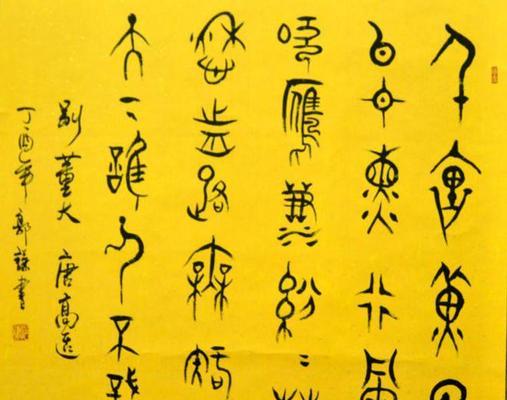 千里黃云
白日曛北風
吹雁雪紛〻莫
愁前路無知
天下誰人不識
別董大 唐高適
丁酉年 郭書